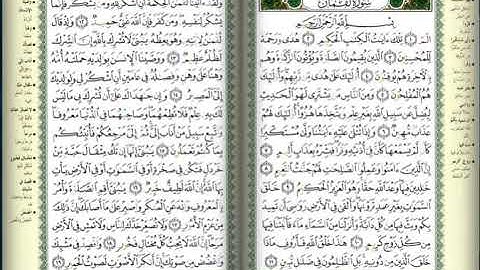 سُورَةُ لُقْمَان
بِسْمِ اللَّهِ الرَّحْمَٰنِ الرَّحِيمِ
الٓمٓ ١ تِلْكَ ءَايَٰتُ الْكِتَٰبِ الْحَكِيمِ ٢ هُدًى وَرَحْمَةً
لِّلْمُحْسِنِينَ ٣ الَّذِينَ يُقِيمُونَ الصَّلَوٰةَ وَيُؤْتُونَ الزَّكَوٰةَ وَهُم
بِالْءَاخِرَةِ هُمْ يُوقِنُونَ ٤ أُو۟لَٰٓئِكَ عَلَىٰ هُدًى مِّن رَّبِّهِمْ وَأُو۟لَٰٓئِكَ
هُمُ الْمُفْلِحُونَ ٥ وَمِنَ النَّاسِ مَن يَشْتَرِى لَهْوَ الْحَدِيثِ
لِيُضِلَّ عَن سَبِيلِ اللَّهِ بِغَيْرِ عِلْمٍ وَيَتَّخِذَهَا هُزُوًا أُو۟لَٰٓئِكَ لَهُمْ
عَذَابٌ مُّهِينٌ ٦ وَإِذَا تُتْلَىٰ عَلَيْهِ ءَايَٰتُنَا وَلَّىٰ مُسْتَكْبِرًا
كَأَن لَّمْ يَسْمَعْهَا كَأَنَّ فِىٓ أُذُنَيْهِ وَقْرًا فَبَشِّرْهُ بِعَذَابٍ أَلِيمٍ ٧
إِنَّ الَّذِينَ ءَامَنُوا وَعَمِلُوا الصَّٰلِحَٰتِ لَهُمْ جَنَّٰتُ النَّعِيمِ ٨
خَٰلِدِينَ فِيهَا وَعْدَ اللَّهِ حَقًّا وَهُوَ الْعَزِيزُ الْحَكِيمُ ٩ خَلَقَ
السَّمَٰوَٰتِ بِغَيْرِ عَمَدٍ تَرَوْنَهَا وَأَلْقَىٰ فِى الْأَرْضِ رَوَٰسِىَ أَن تَمِيدَ
بِكُمْ وَبَثَّ فِيهَا مِن كُلِّ دَآبَّةٍ وَأَنزَلْنَا مِنَ السَّمَآءِ مَآءً فَأَنبَتْنَا فِيهَا
مِن كُلِّ زَوْجٍ كَرِيمٍ ١٠ هَٰذَا خَلْقُ اللَّهِ فَأَرُونِى مَاذَا خَلَقَ
الَّذِينَ مِن دُونِهِ بَلِ الظَّٰلِمُونَ فِى ضَلَٰلٍ مُّبِينٍ ١١
وَلَقَدْ ءَاتَيْنَا لُقْمَٰنَ الْحِكْمَةَ أَنِ اشْكُرْ لِلَّهِ وَمَن يَشْكُرْ فَإِنَّمَا
يَشْكُرُ لِنَفْسِهِ وَمَن كَفَرَ فَإِنَّ اللَّهَ غَنِىٌّ حَمِيدٌ ١٢ وَإِذْ قَالَ
لُقْمَٰنُ لِابْنِهِ وَهُوَ يَعِظُهُ يَٰبُنَىَّ لَا تُشْرِكْ بِاللَّهِ إِنَّ الشِّرْكَ
لَظُلْمٌ عَظِيمٌ ١٣ وَوَصَّيْنَا الْإِنسَٰنَ بِوَٰلِدَيْهِ حَمَلَتْهُ أُمُّهُ
وَهْنًا عَلَىٰ وَهْنٍ وَفِصَٰلُهُ فِى عَامَيْنِ أَنِ اشْكُرْ لِى وَلِوَٰلِدَيْكَ
إِلَىَّ الْمَصِيرُ ١٤ وَإِن جَٰهَدَاكَ عَلَىٰٓ أَن تُشْرِكَ بِى مَا لَيْسَ
لَكَ بِهِ عِلْمٌ فَلَا تُطِعْهُمَا وَصَاحِبْهُمَا فِى الدُّنْيَا مَعْرُوفًا
وَاتَّبِعْ سَبِيلَ مَنْ أَنَابَ إِلَىَّ ثُمَّ إِلَىَّ مَرْجِعُكُمْ فَأُنَبِّئُكُم
بِمَا كُنتُمْ تَعْمَلُونَ ١٥ يَٰبُنَىَّ إِنَّهَآ إِن تَكُ مِثْقَالَ حَبَّةٍ
مِّنْ خَرْدَلٍ فَتَكُن فِى صَخْرَةٍ أَوْ فِى السَّمَٰوَٰتِ أَوْ فِى الْأَرْضِ يَأْتِ
بِهَا اللَّهُ إِنَّ اللَّهَ لَطِيفٌ خَبِيرٌ ١٦ يَٰبُنَىَّ أَقِمِ الصَّلَوٰةَ
وَأْمُرْ بِالْمَعْرُوفِ وَانْهَ عَنِ الْمُنكَرِ وَاصْبِرْ عَلَىٰ مَآ أَصَابَكَ إِنَّ ذَٰلِكَ
مِنْ عَزْمِ الْأُمُورِ ١٧ وَلَا تُصَعِّرْ خَدَّكَ لِلنَّاسِ وَلَا تَمْشِ فِى الْأَرْضِ
مَرَحًا إِنَّ اللَّهَ لَا يُحِبُّ كُلَّ مُخْتَالٍ فَخُورٍ ١٨ وَاقْصِدْ فِى مَشْيِكَ
وَاغْضُضْ مِن صَوْتِكَ إِنَّ أَنكَرَ الْأَصْوَٰتِ لَصَوْتُ الْحَمِيرِ ١٩